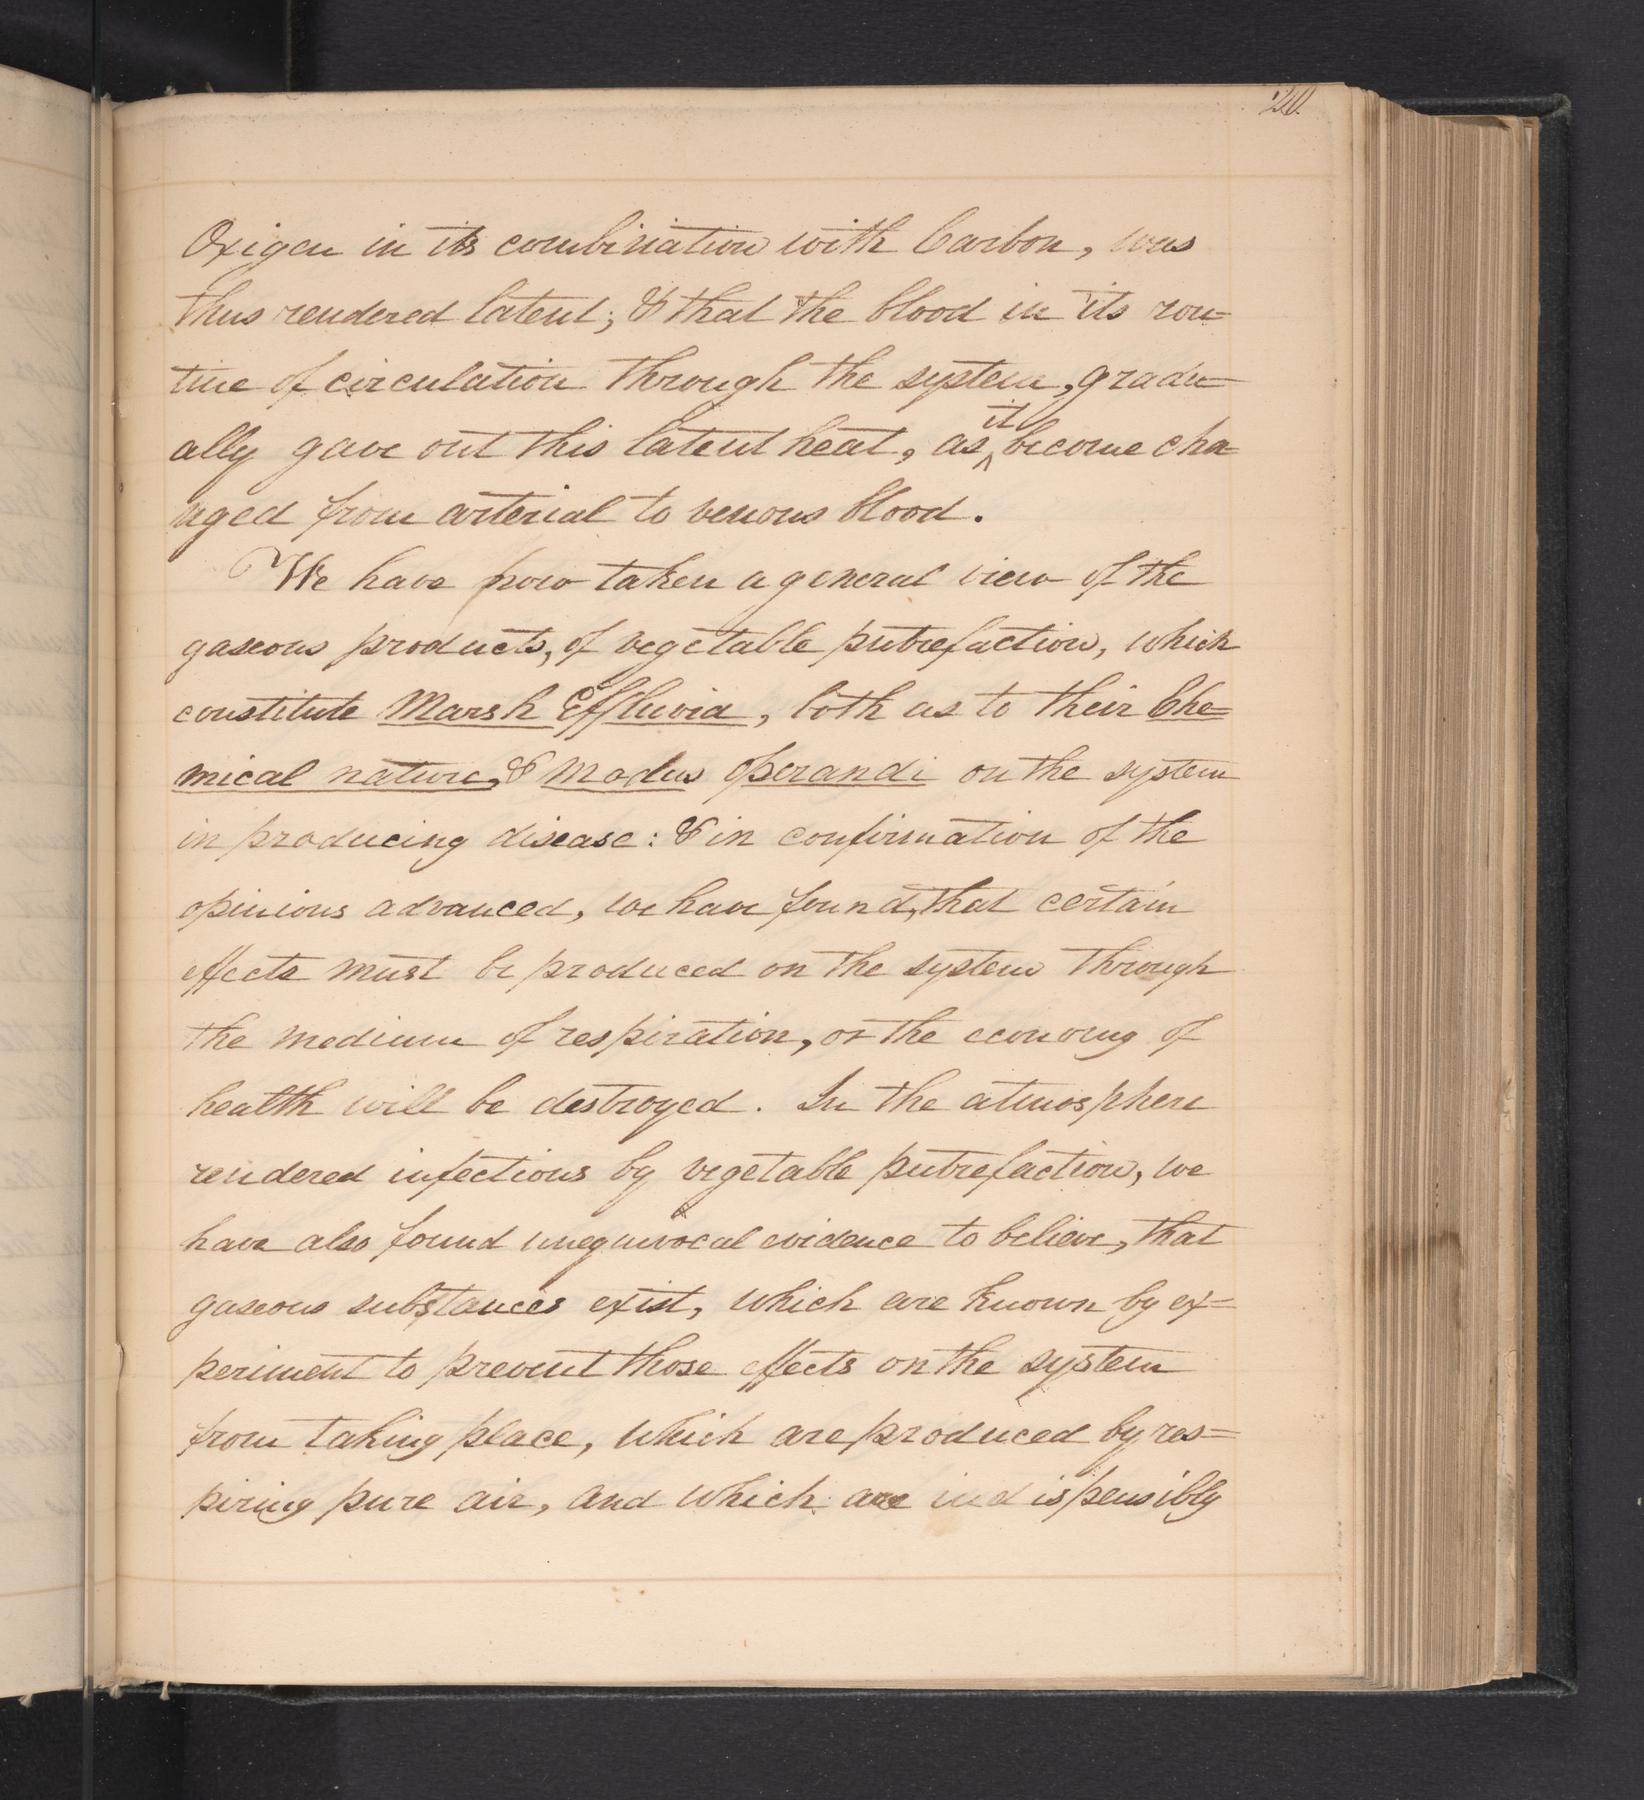 Oxigen in its combination with Carbon, was
thus rendered latent; & that the blood in its rou=
tine of circulation through the system, gradu=
ally gave out this latent heat, as it become cha=
nged from arterial to venous blood.
We have now taken a general view of the
gaseous products, of vegetable putrefaction, which
constitute Marsh Effluvia, both as to their Che=
mical nature, & Modus operandi on the system
in producing disease: & in confirmation of the
opinions advanced, we have found, that certain
effects must be produced on the system through
the medium of respiration, or the economy of
health will be destroyed. In the atmosphere
rendered infectious by vegetable putrefaction, we
have also found unequivocal evidence to believe, that
gaseous substances exist, which are known by ex=
periment to prevent those effects on the system
from taking place, which are produced by res=
piring pure air, and which are indispensibly